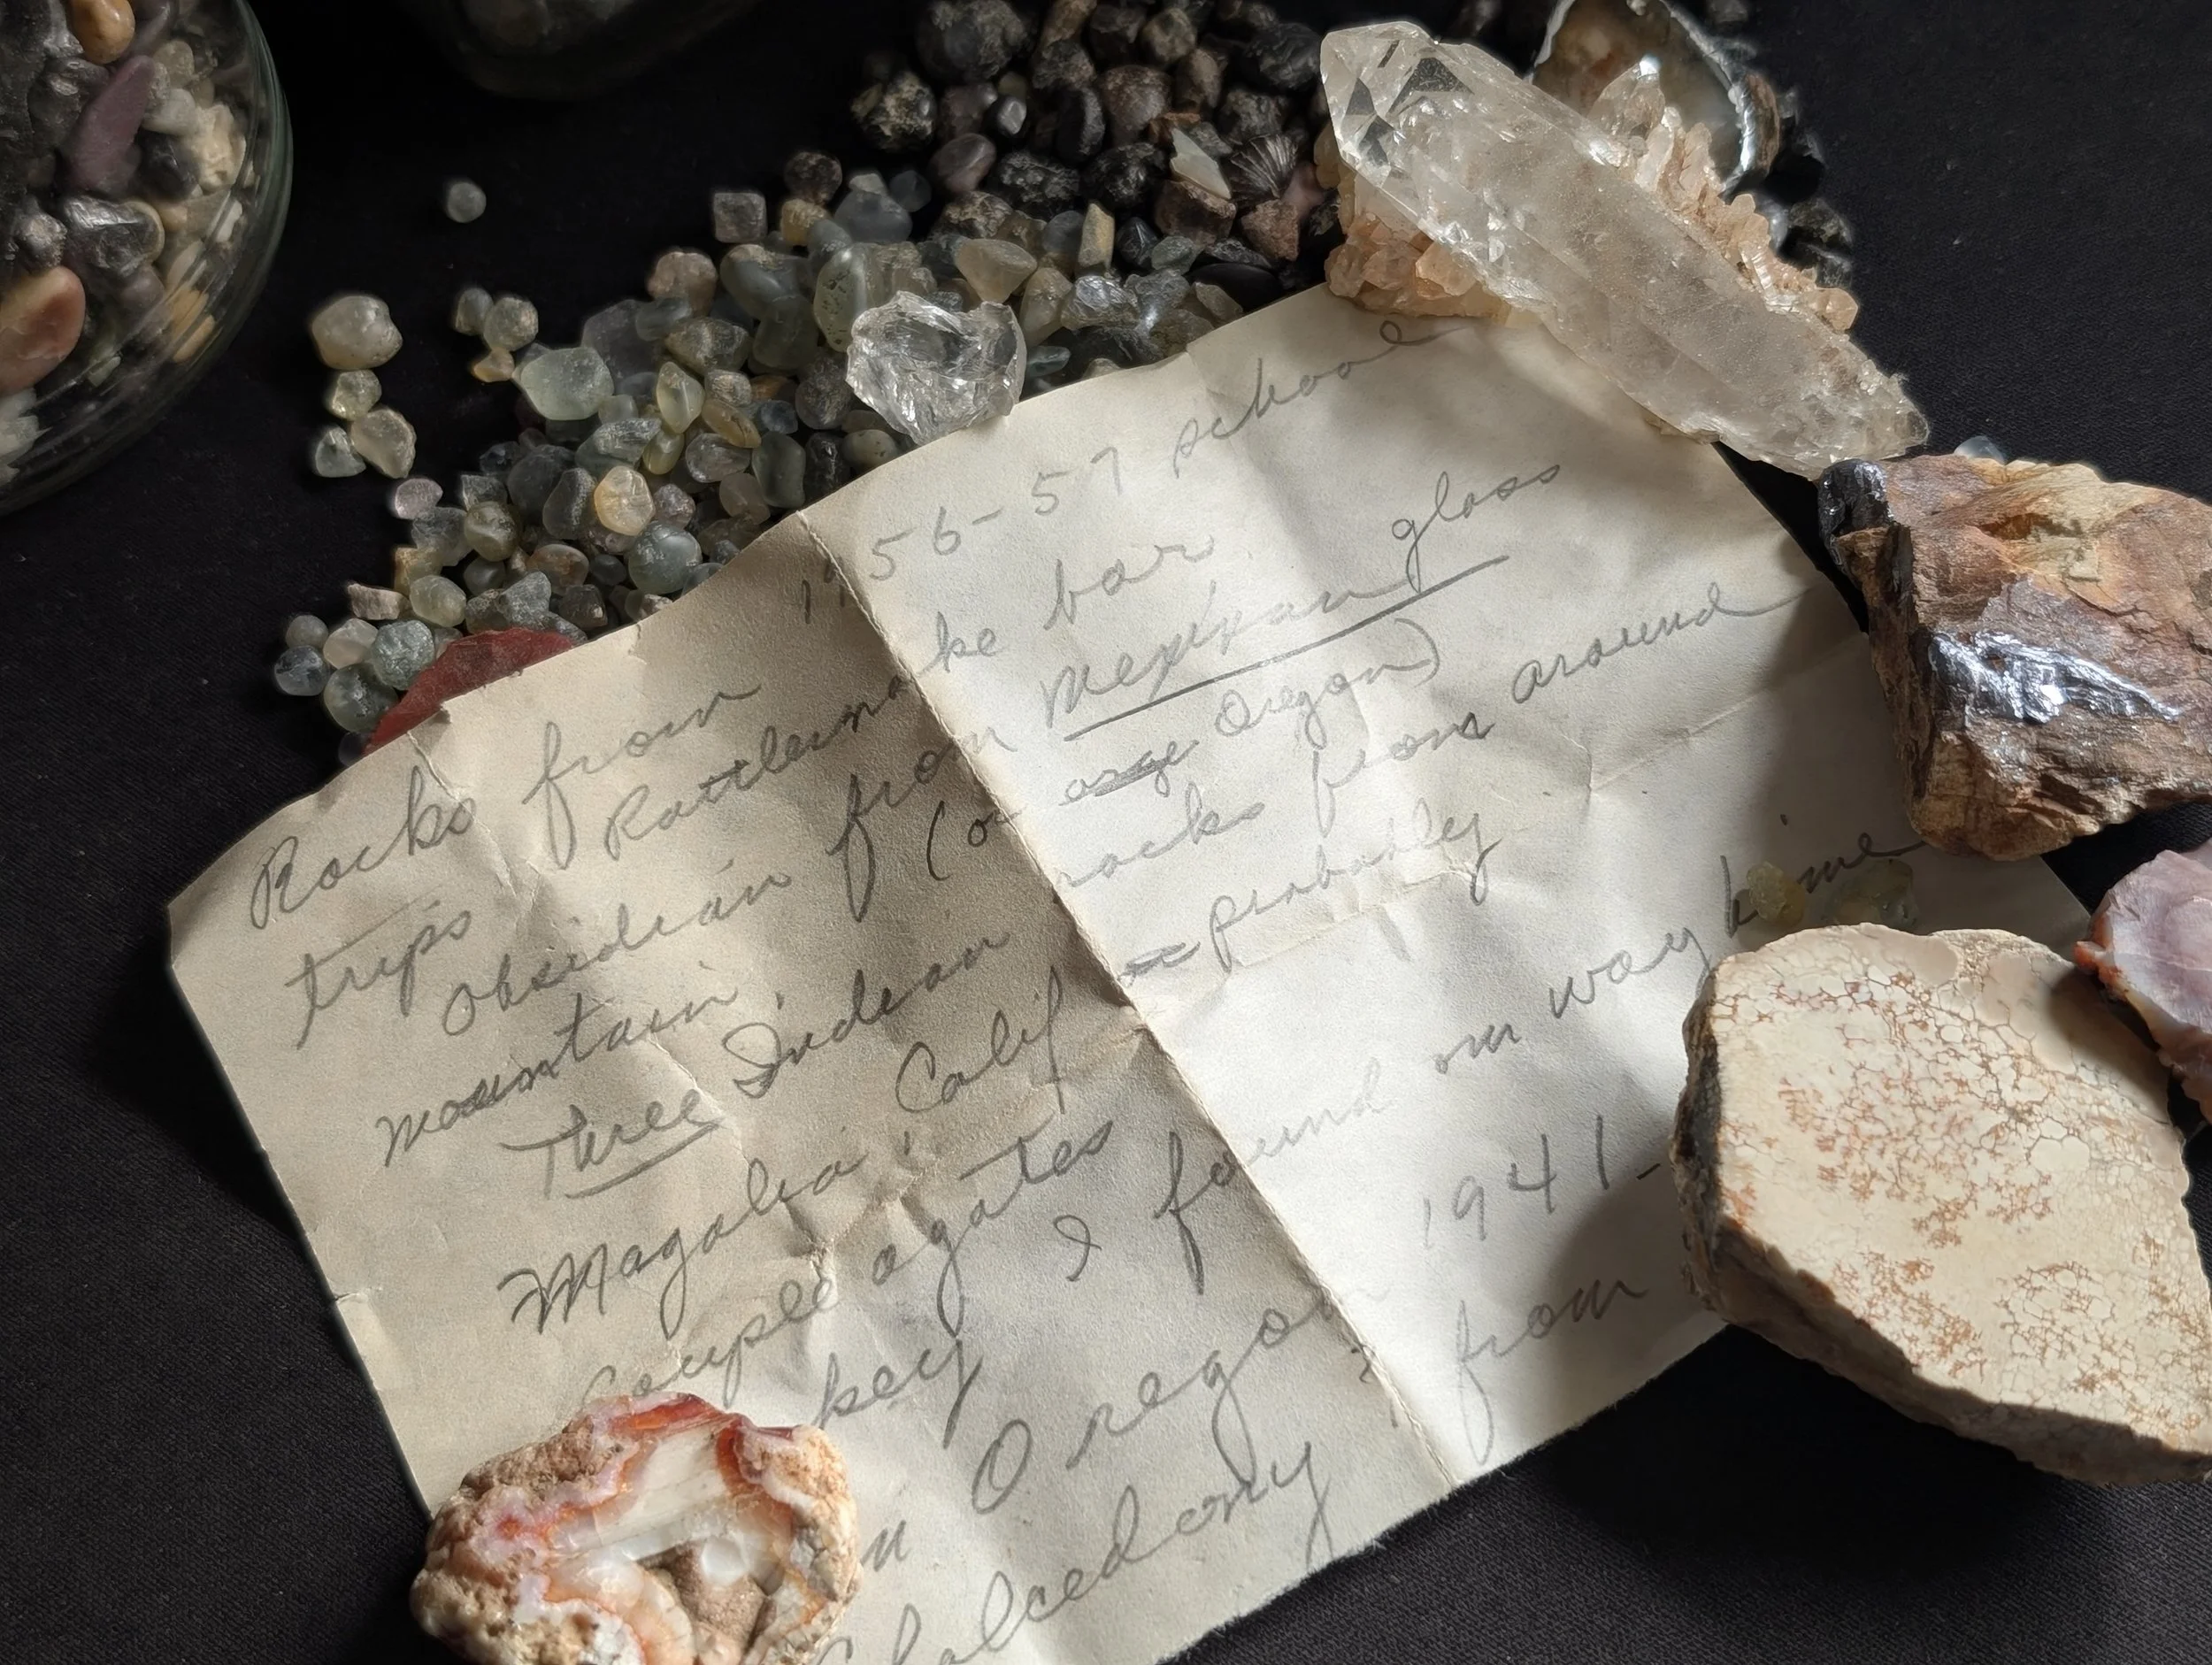 Rocks from 1956-57 school
trips Rattlesnake bar.
Obsidian from glass
mountain. (or Oregon)
Three Indian rocks from around
Magalia, Calif probably
Couple agates
key I found on way home
in Oregon 1941-
Chalcedony from